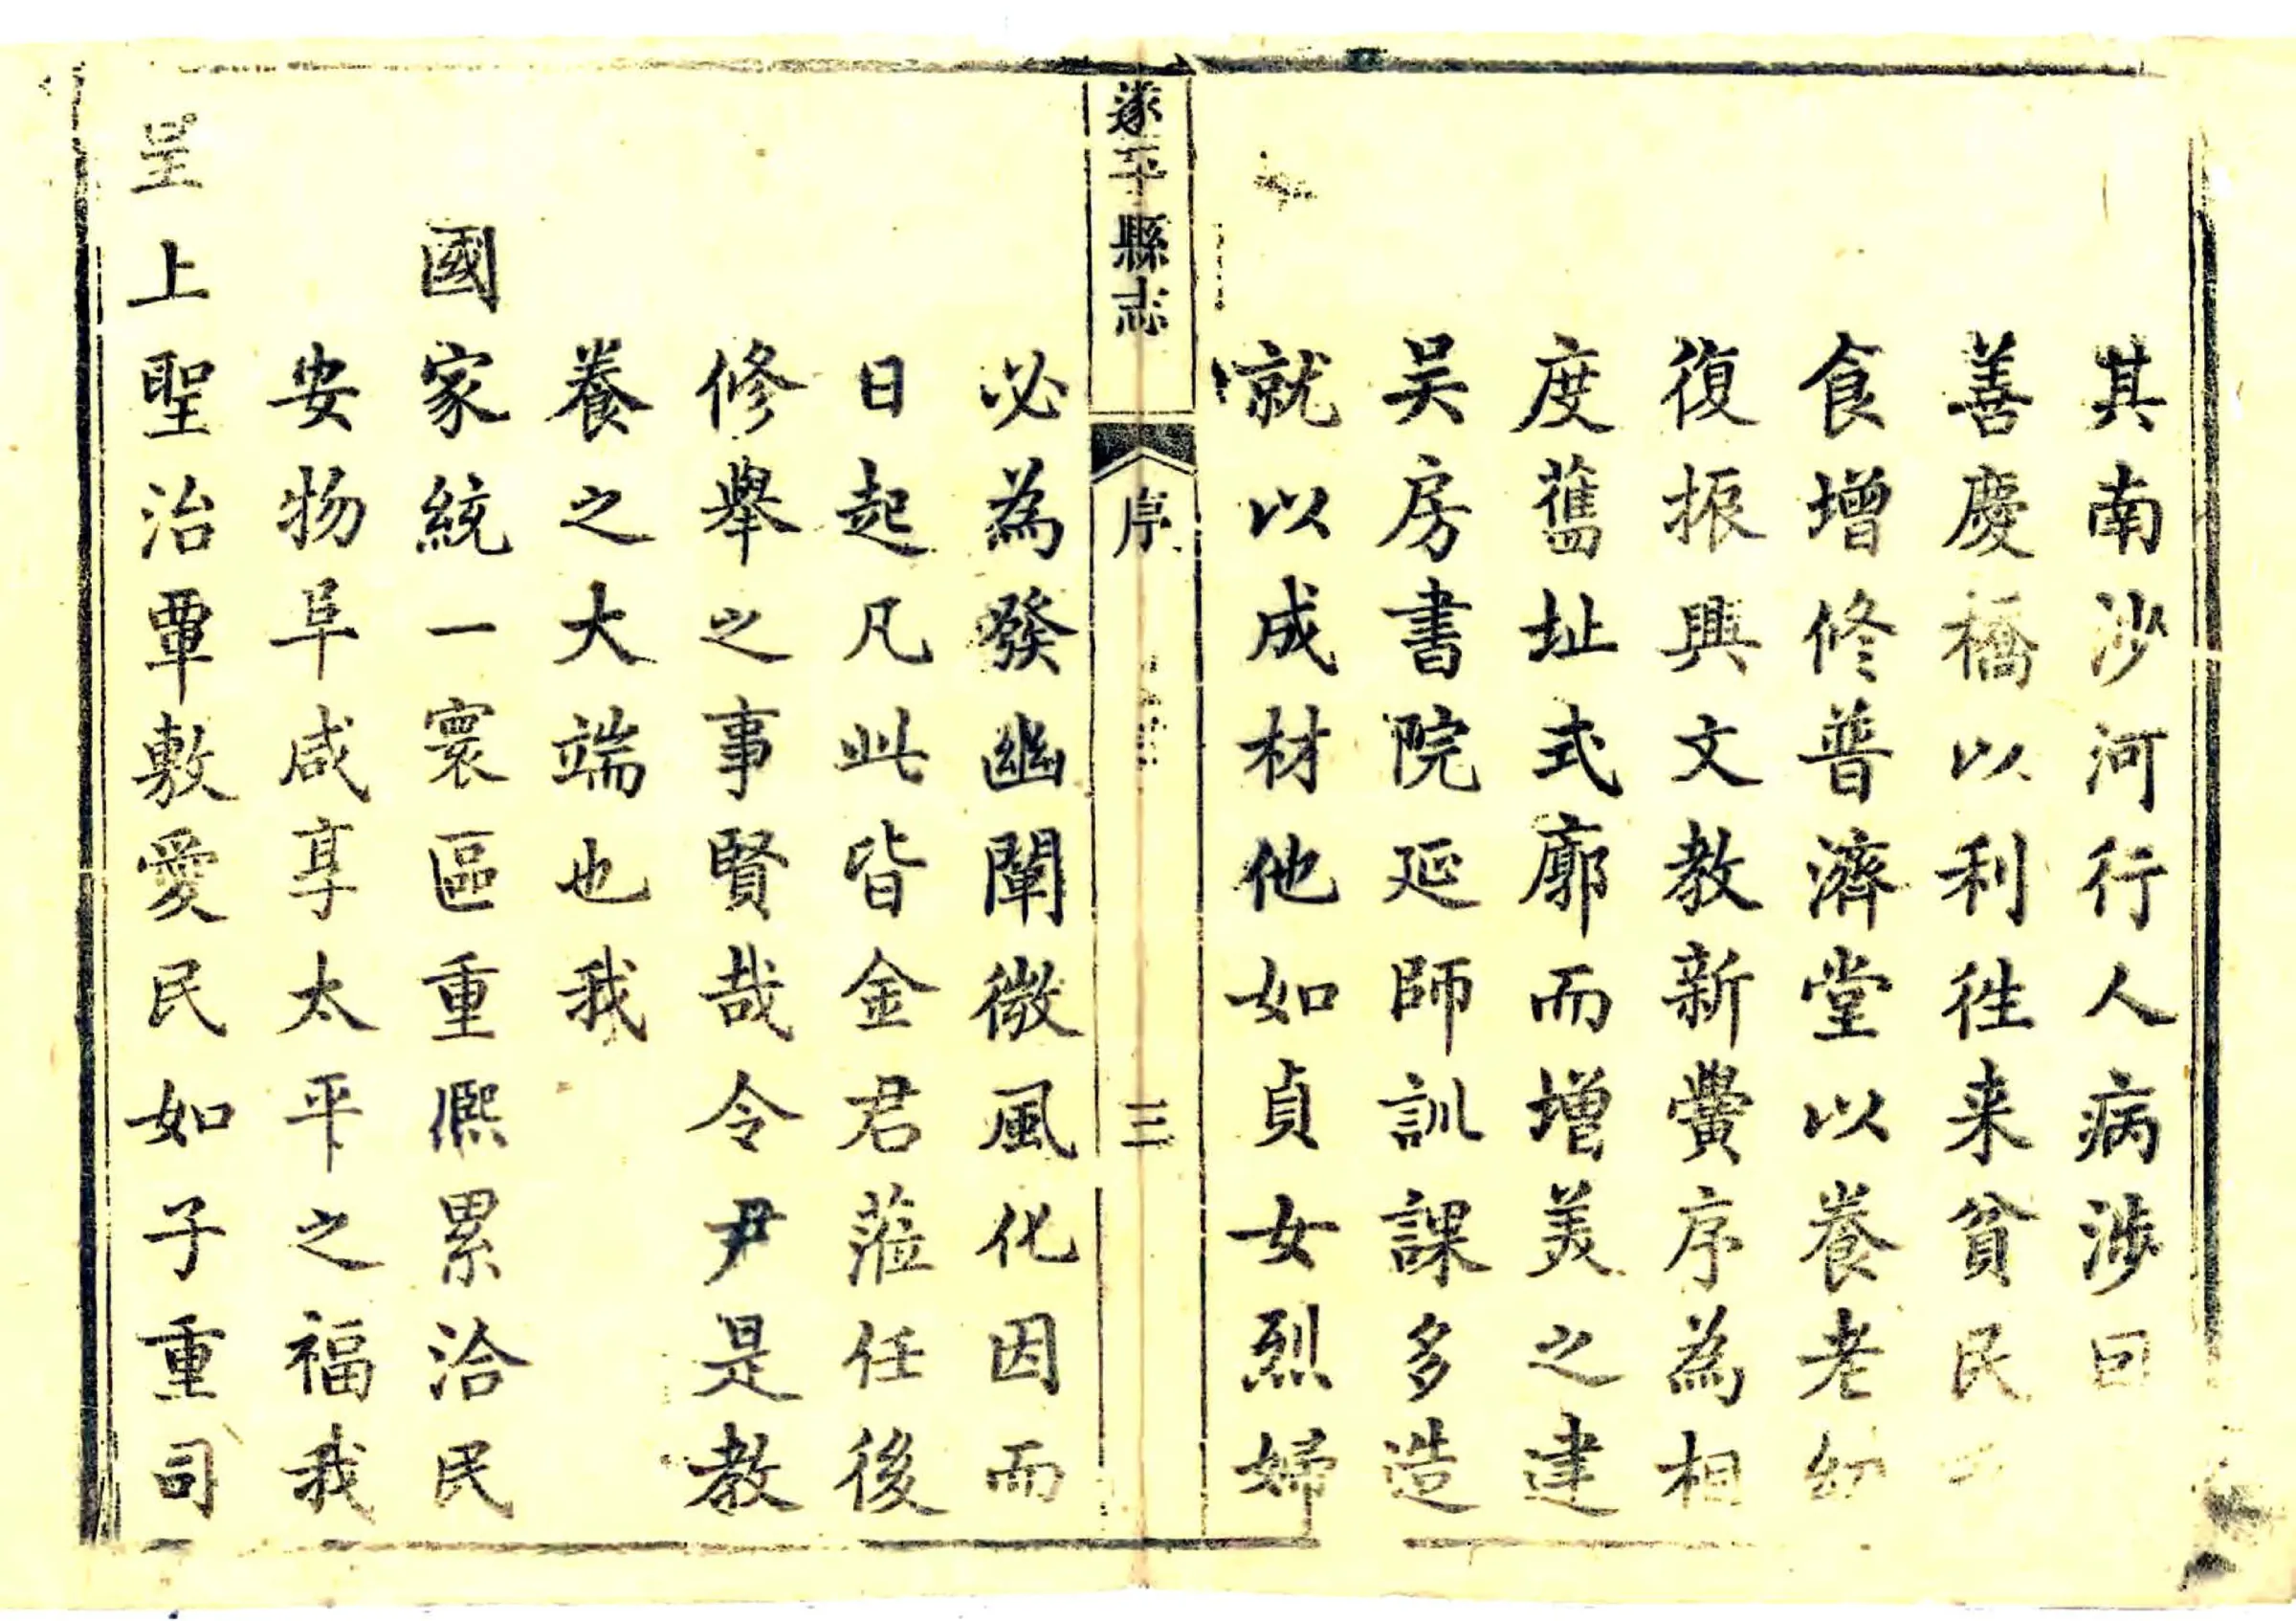 其南沙河行人病涉
善慶橋以利徃来貧民
食增修普濟堂以養老幼
復振興文教新黌序為相
度舊址式廓而增美之建
吴房書院延師訓課多造
就以成材他如貞女烈婦
遂平縣志
序
三
必為發幽闡微風化因而
日起凡此皆金君蒞任後
修舉之事賢哉令尹是教
養之大端也我
國家統一寰區重熈累洽民
安物阜咸享太平之福我
皇上聖治覃敷愛民如子重司